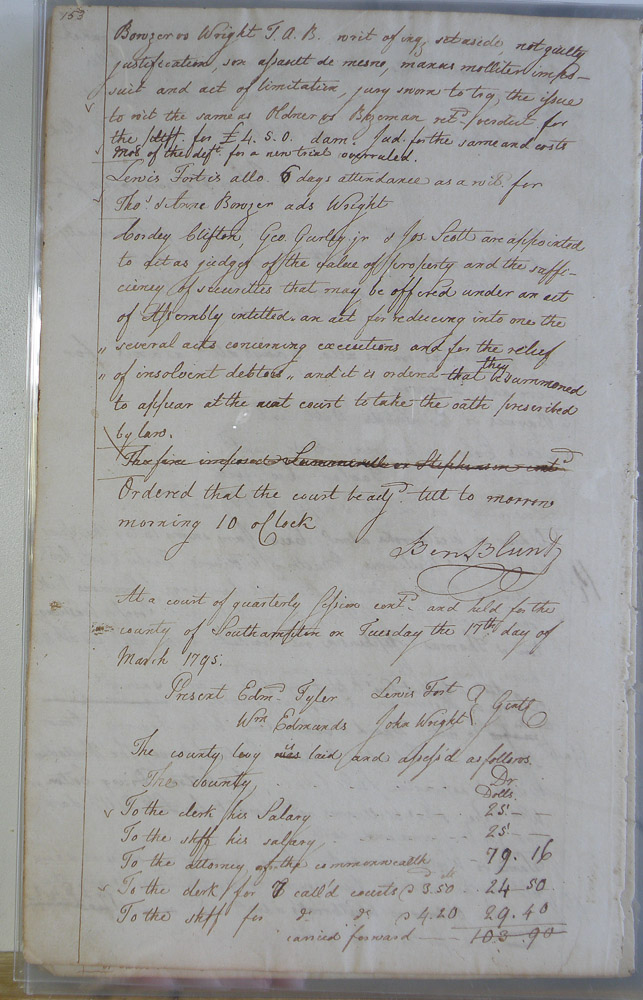 153
Bowzer vs Wright T. A. B. writ of inq. set aside, not guilty
justification, son assault de mesne, manus molliter impo-
suit and act of limitation, jury sworn to try the issue
to wit the same as Oldner vs Bozeman retd. verdict for
the plft. for £4. 5. 0. dam. Jud. for the same and costs
Mot. of the deft. for a new trial overruled.
Lewis Fort is allo. 6 days attendance as a wit. for
Thos. & Anne Bowzer ads Wright
Cordey Clifton, Geo. Gurley jr & Jos. Scott are appointed
to act as judges of the value of property and the suffi-
ciency of securities that may be offered under an act
of Assembly intitled "an act for reducing into one the
" several acts concerning executions and for the relief
" of insolvent debtors" and it is ordered that they be summoned
to appear at the next court to take the oath prescribed
by law.
The fine imposed Summerell vs Stephenson contd
Ordered that the court be adjd. till to morrow
morning 10 oClock
Ben Blunt
At a court of quarterly Session contd. and held for the
county of Southampton on Tuesday the 17th day of
March 1795.
Present Edmd. Tyler Lewis Fort } Gentl
Wm. Edmunds John Wright
The county levy is laid and assess'd as follows.
The county Dr
Dolls.
To the clerk his Salary 25 —
To the shff his salary 25 —
To the attorney of the commonwealth 79. 16
To the clerk for 7 call'd courts @ 3.50 24 50
To the shff for do. do. @ 4.20 29.40
carried forward 103 90